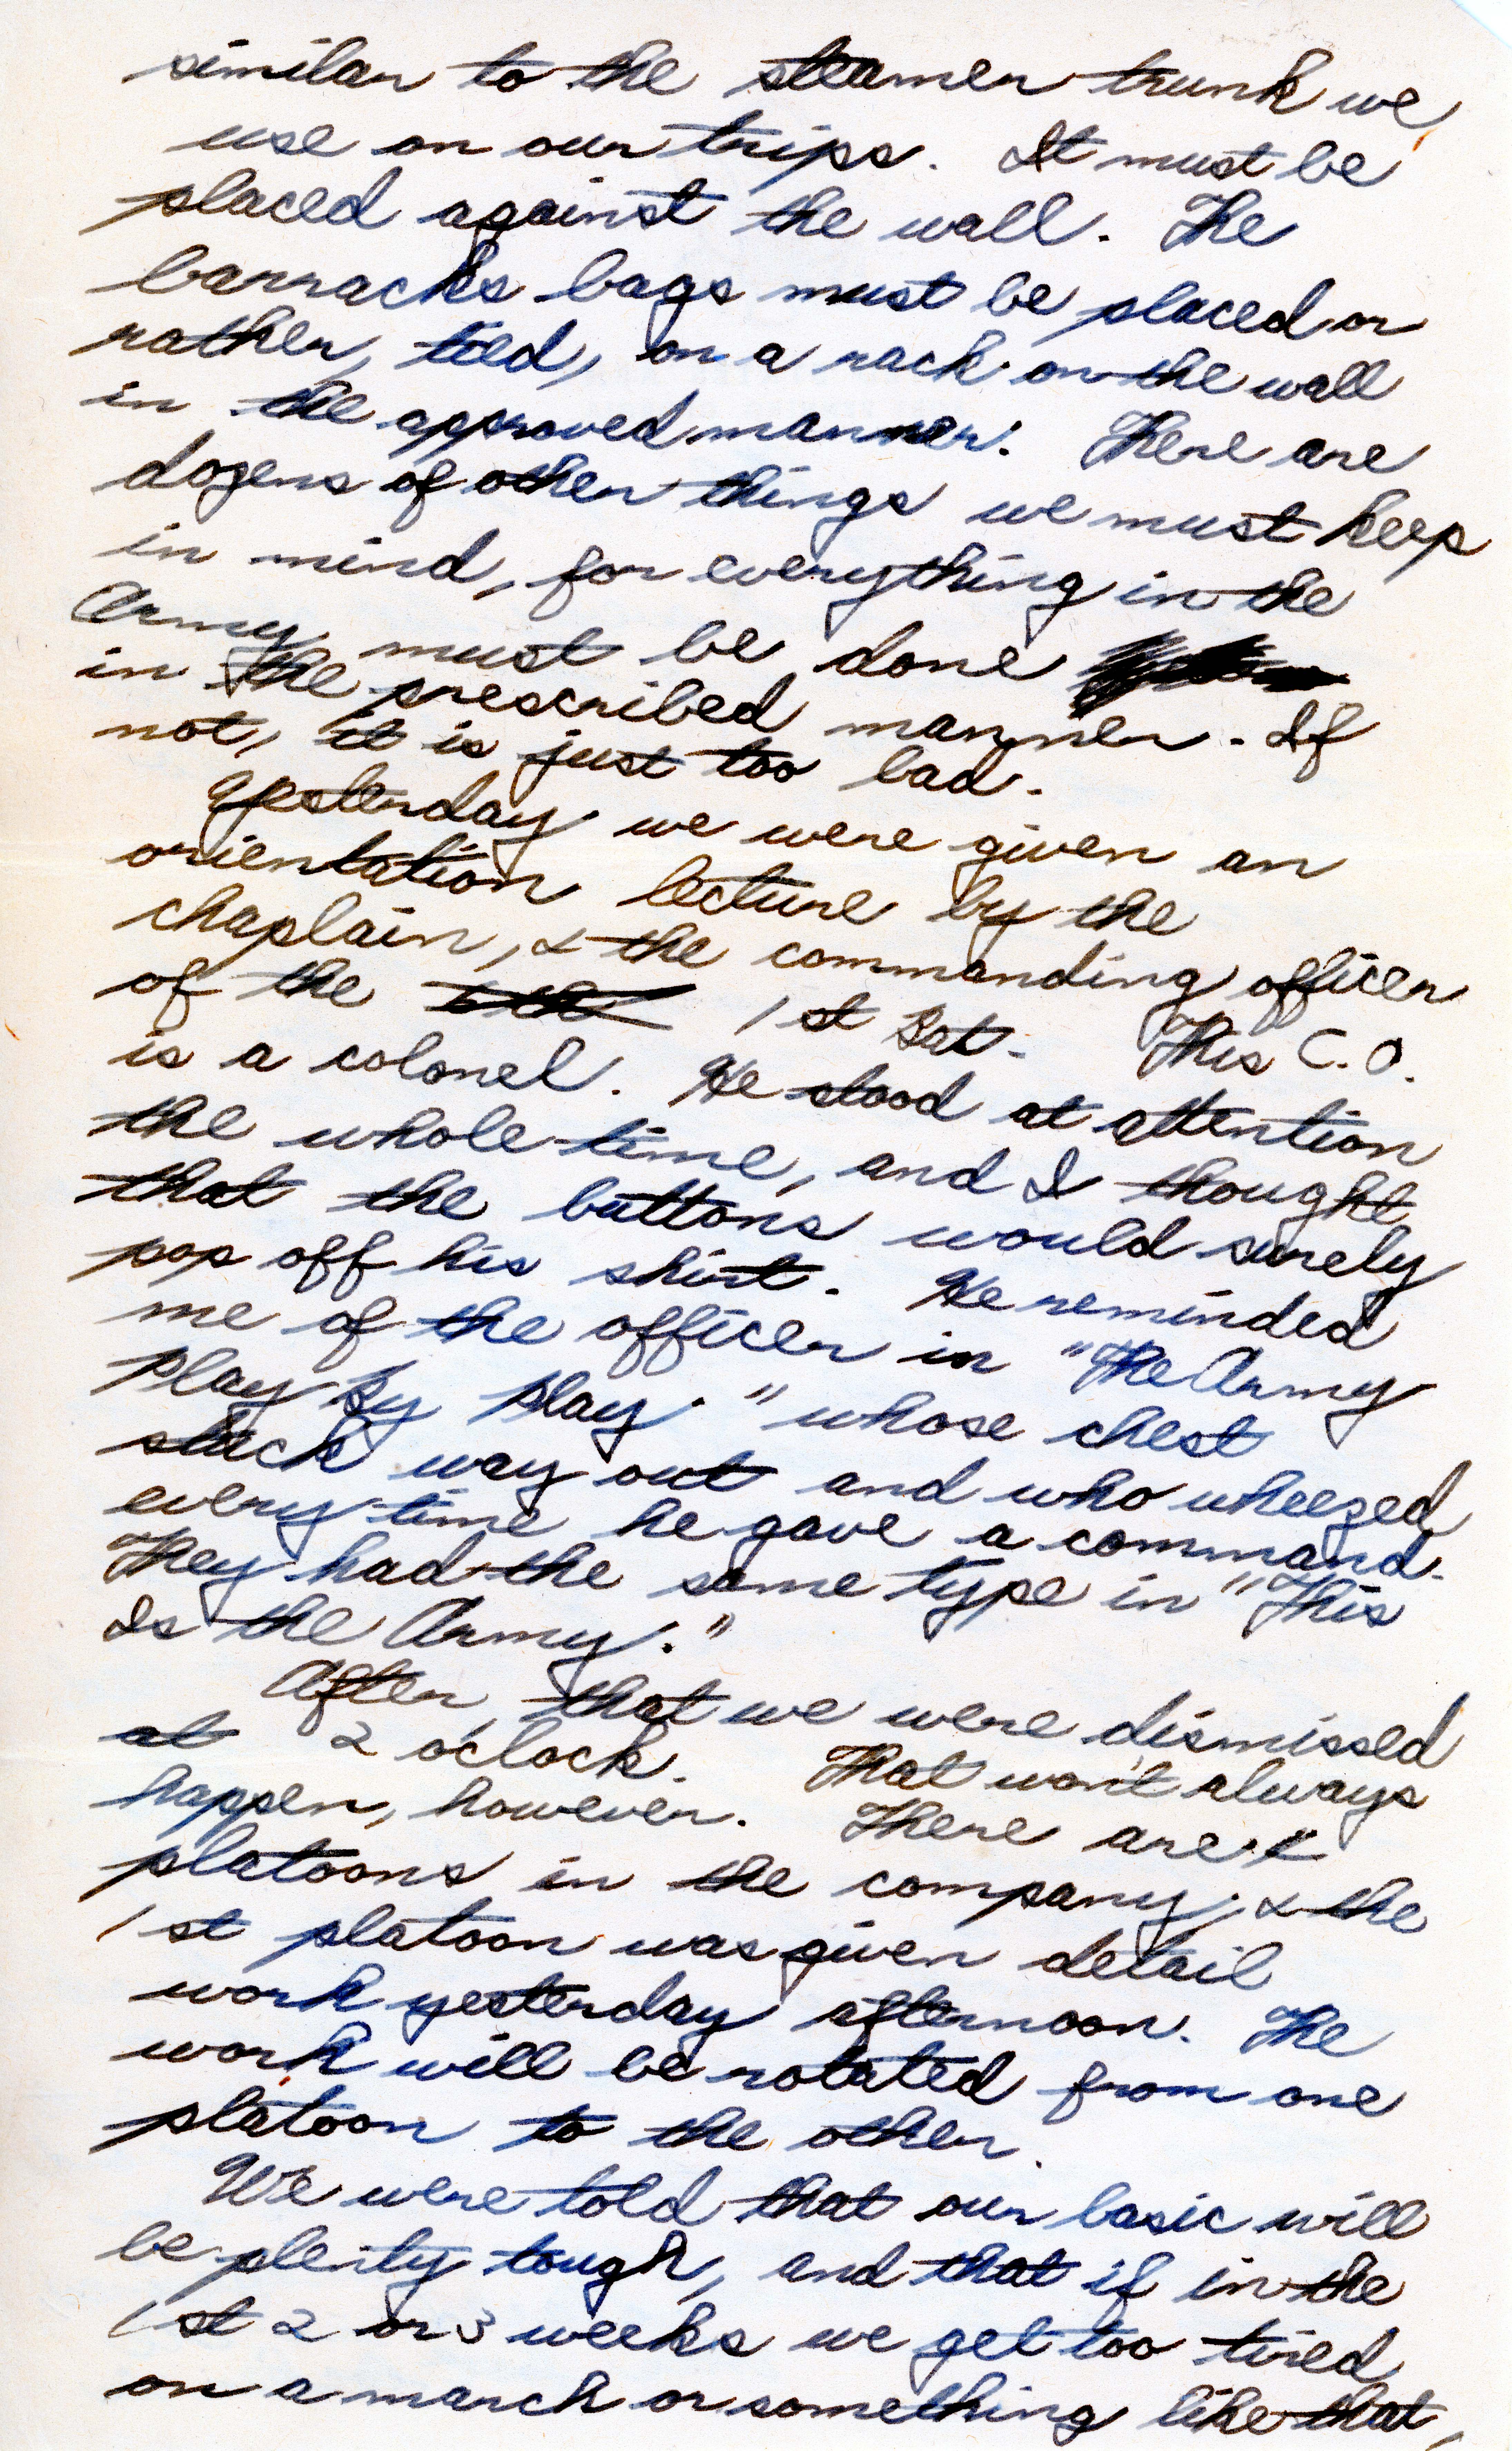 similar to the steamer trunk we
use on our trips. It must be
placed against the wall. The
barracks bags must be placed or
rather, tied, on a rack on the wall
in the approved manner. There are
dozens of other things we must keep
in mind, for everything in the
Army must be done
in the prescribed manner. If
not, it is just too bad.
Yesterday we were given an
orientation lecture by the
chaplain, & the commanding officer
of the 1st Bat. This C.O.
is a colonel. He stood at attention
the whole time, and I thought
that the buttons would surely
pop off his shirt. He reminded
me of the officer in "The Army
Play by Play." whose chest
stuck way out and who wheezed
every time he gave a command.
They had the same type in "This
Is the Army."
After that we were dismissed
at 2 o'clock. That won't always
happen, however. There are
platoons in the company, & the
1st platoon was given detail
work yesterday afternoon. The
work will be rotated from one
platoon to the other.
We were told that our basic will
be plenty tough, and that if in the
1st 2 or 3 weeks we get too tired
on a march or something like that,